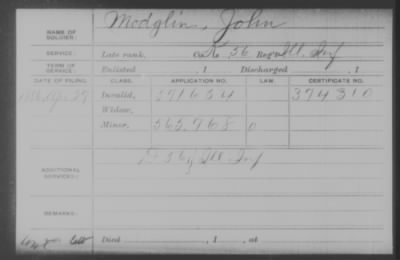 NAME OF SOLDIER: Modglin, John
SERVICE: Late rank, Co. K 56 Reg't Ill. Inf
TERM OF SERVICE: Enlisted , 1 Discharged , 1
DATE OF FILING. CLASS. APPLICATION NO. LAW. CERTIFICATE NO.
1886, Apr 29 Invalid, 571654 374310
Widow,
Minor, 565,768 0
ADDITIONAL SERVICES: Ill Inf
REMARKS:
Died , 1 , at